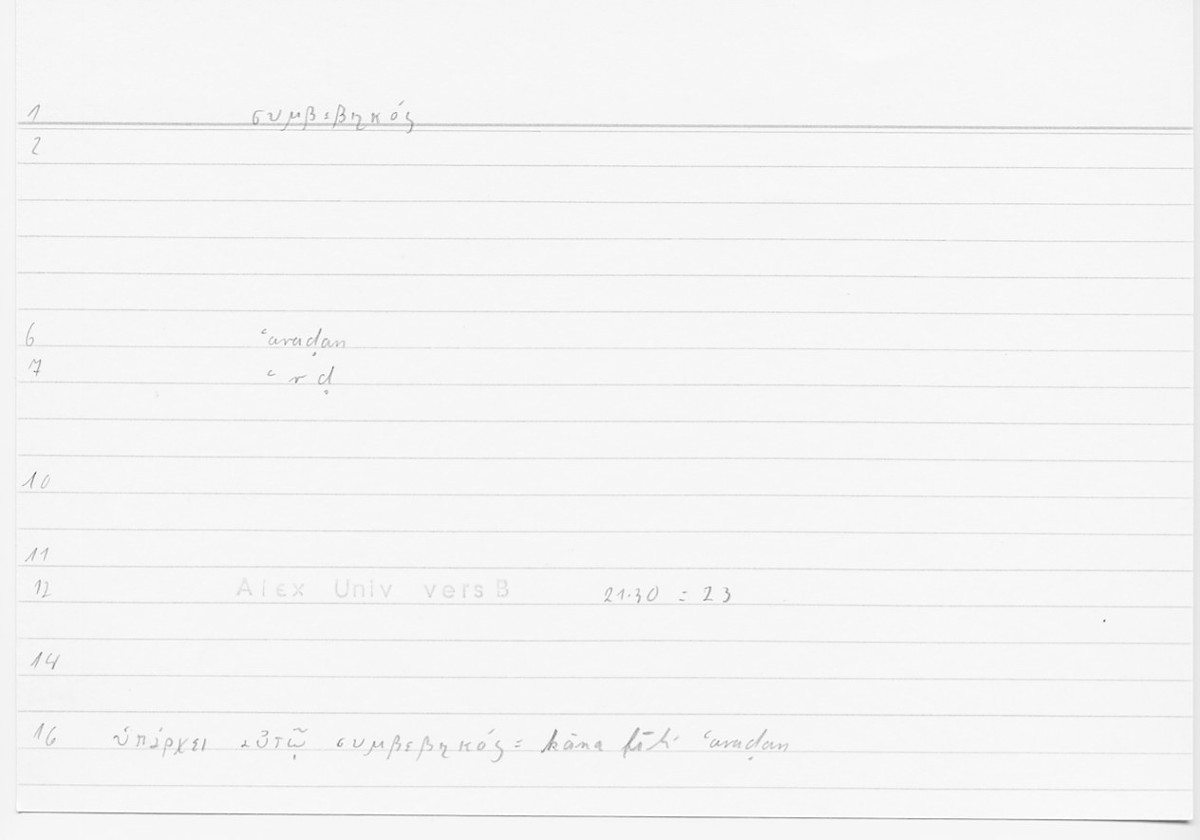 1 συμβεβηκός
2
6 ʿaraḍan
7 ʿ r ḍ
10
11
12 Alex Univ vers B 21.30 = 23
14
16 ὑπάρχει αὐτῷ συμβεβηκός = kāna ʿaraḍan